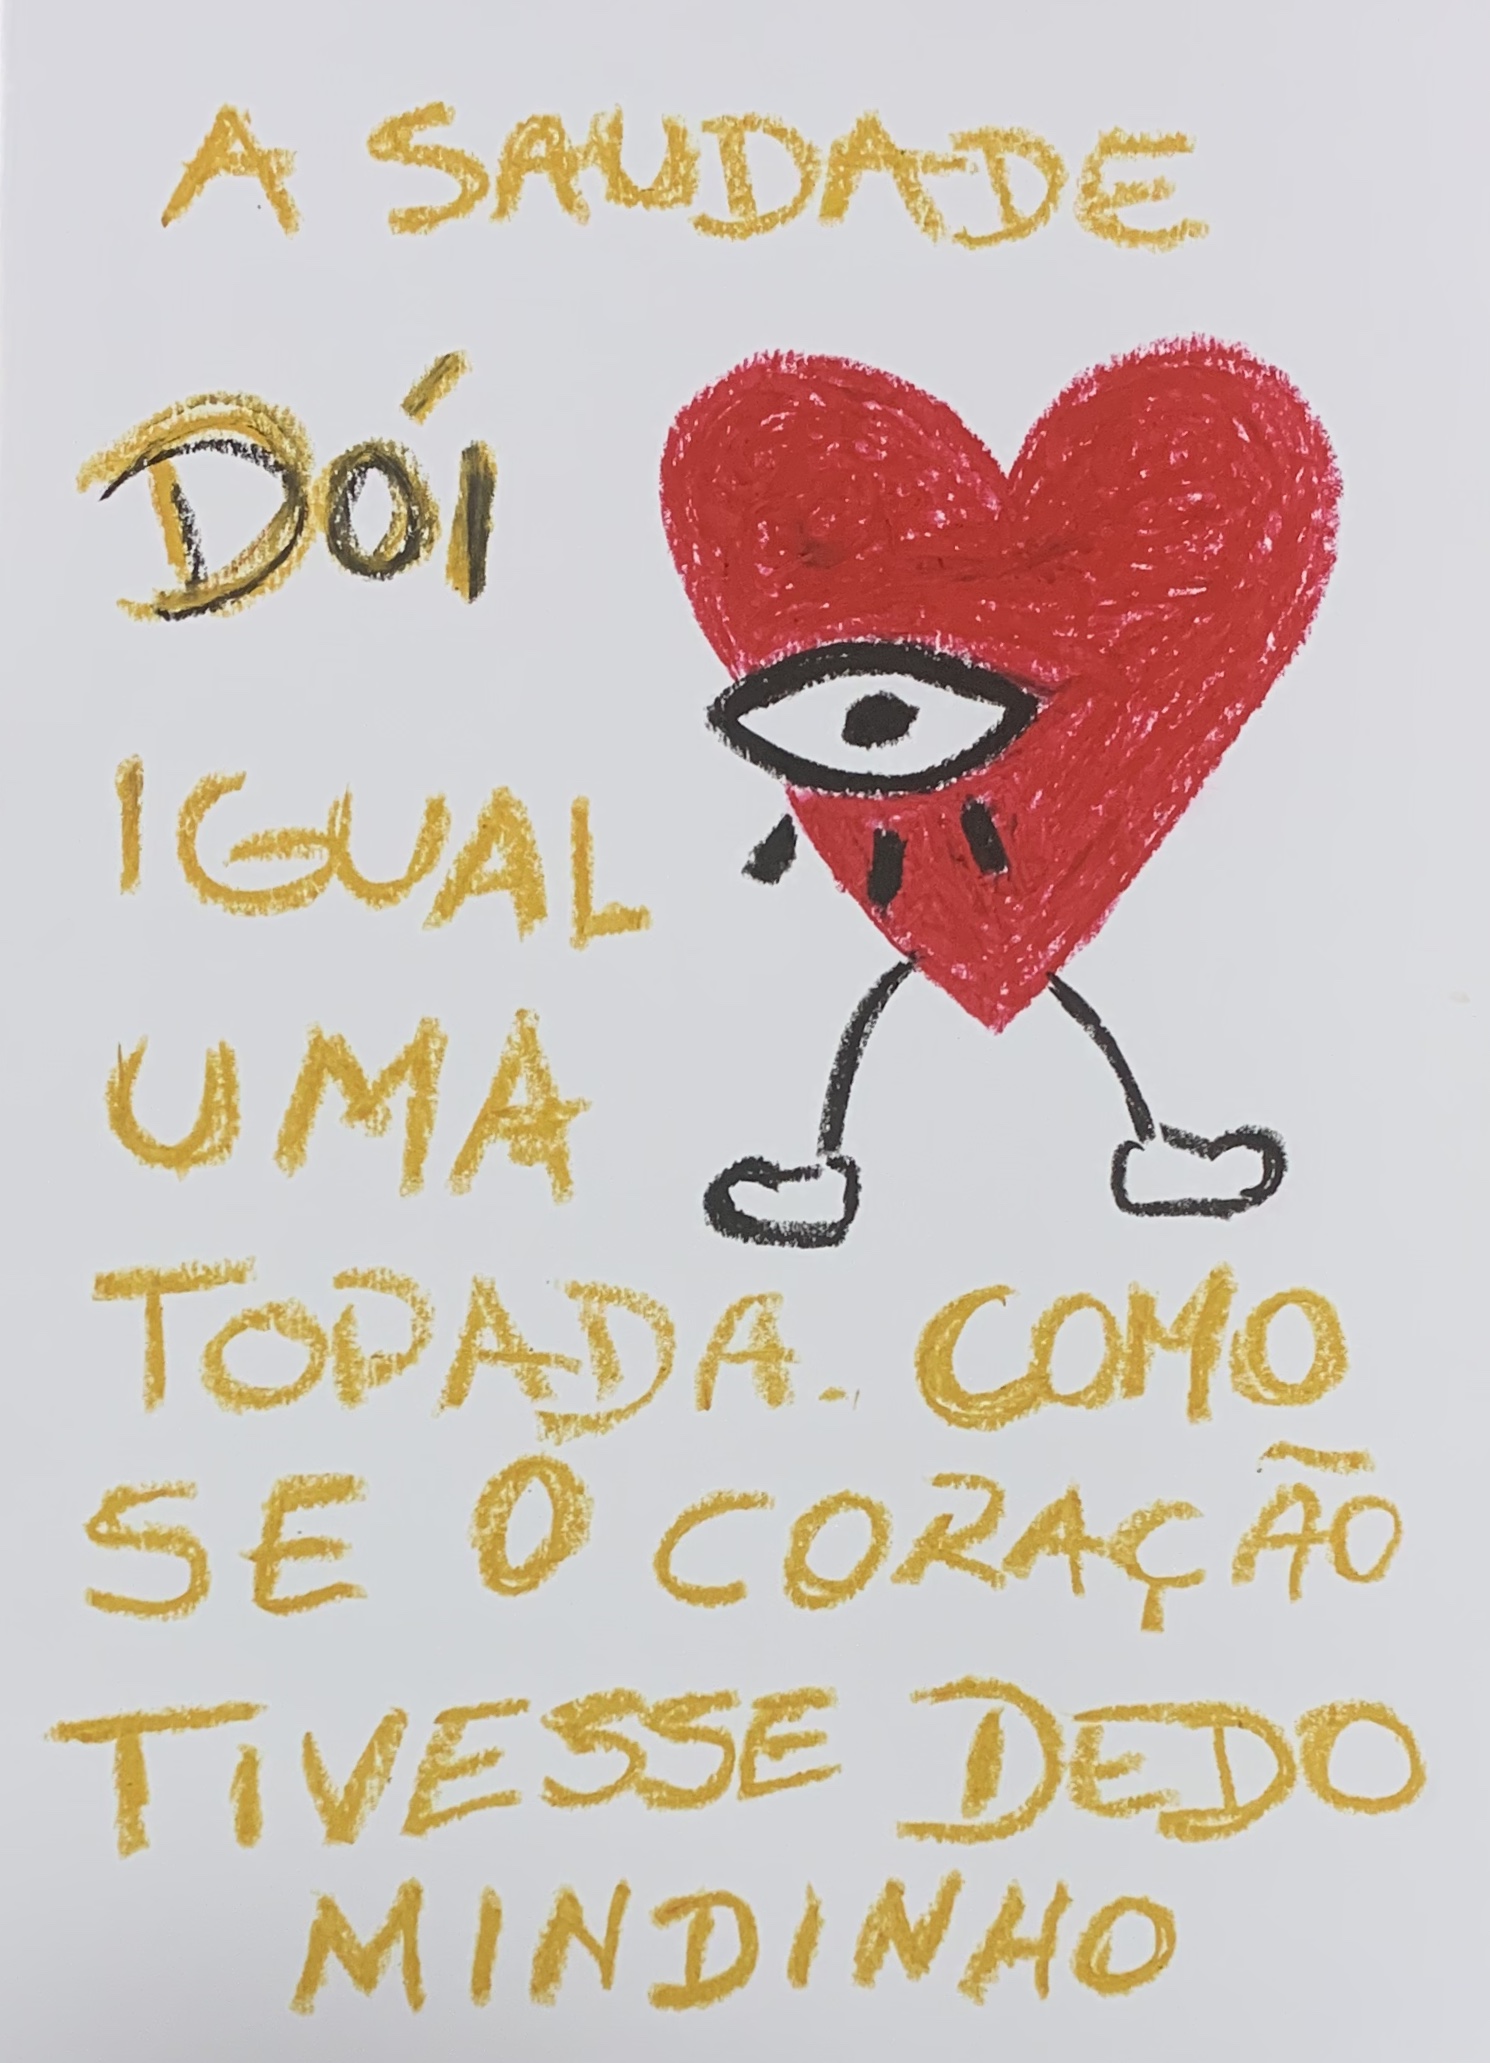 A SAUDADE
DÓI
IGUAL
UMA
TOPADA. COMO
SE O CORAÇÃO
TIVESSE DEDO
MINDINHO